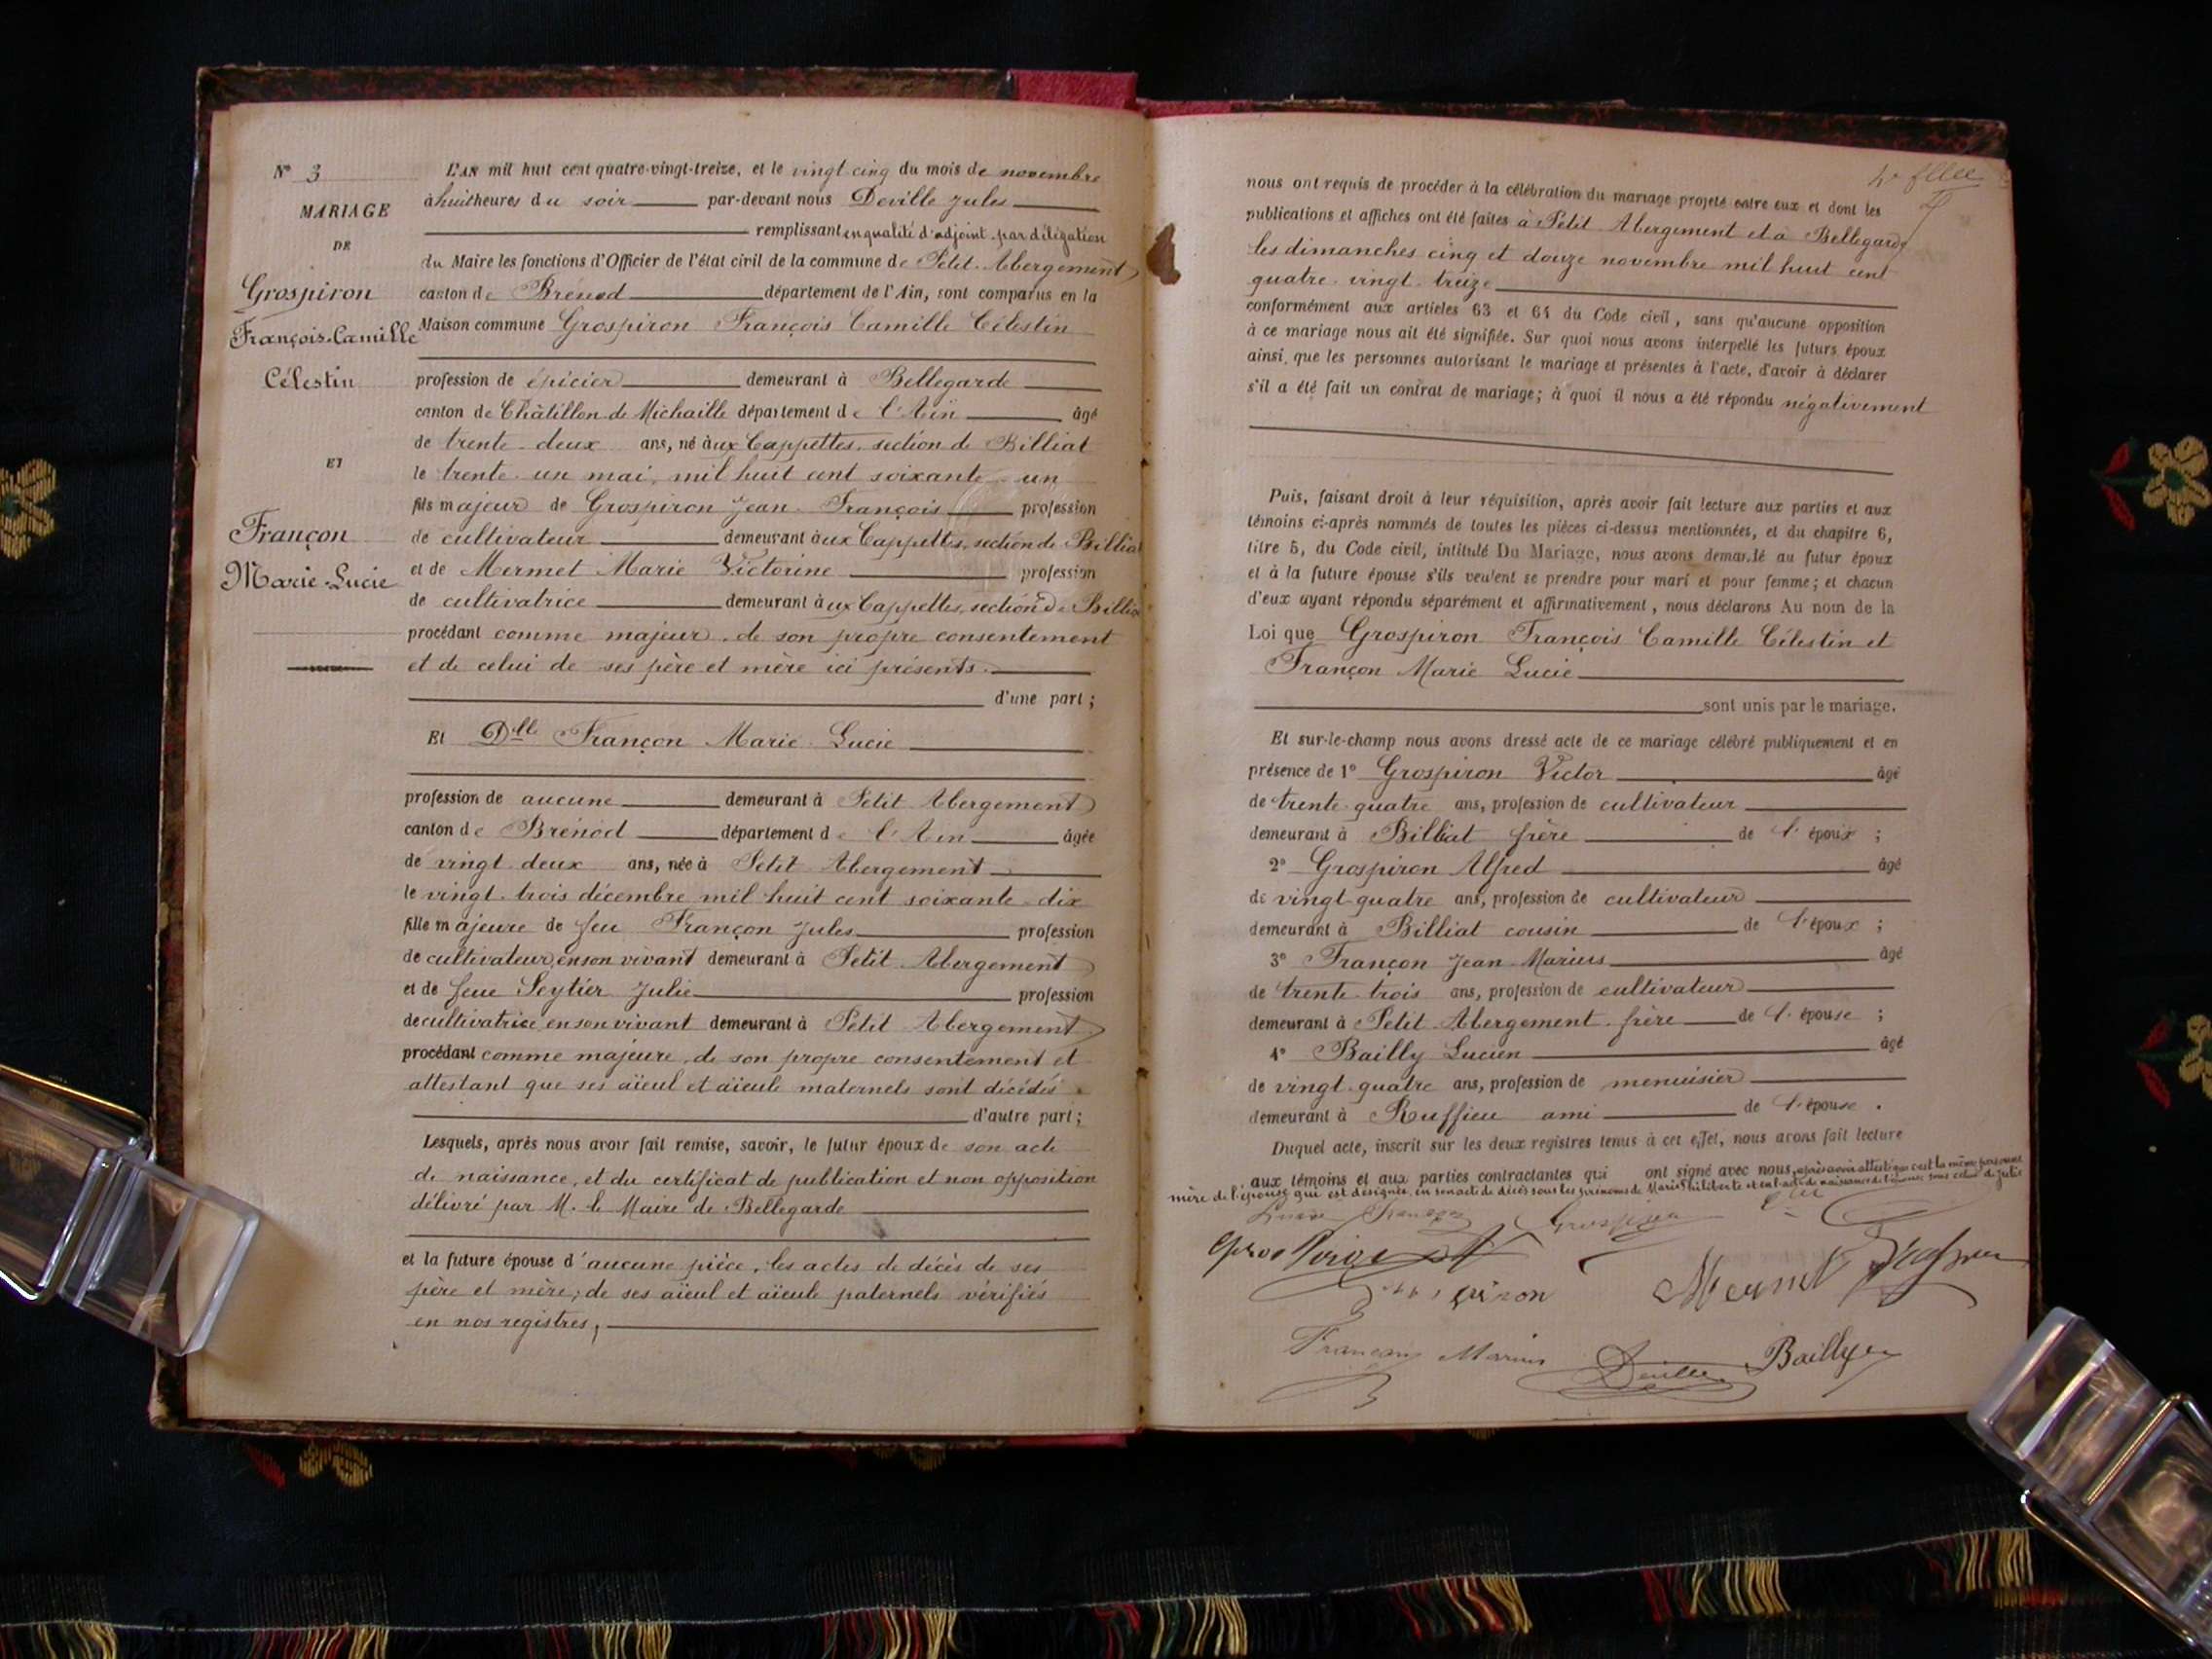 N° 3
MARIAGE
DE
Grospiron
François-Camille
Célestin
ET
Françon
Marie-Lucie
L'AN mil huit cent quatre-vingt-treize, et le vingt-cinq du mois de novembre
à huit heures du soir par-devant nous Deville Jules
remplissant en qualité d'adjoint par délégation
du Maire les fonctions d'Officier de l'état civil de la commune de Petit-Abergement
canton de Brénod département de l'Ain, sont comparus en la
Maison commune Grospiron François Camille Célestin
profession de épicier demeurant à Bellegarde
canton de Châtillon de Michaille département de l'Ain âgé
de trente-deux ans, né aux Cappettes, section de Billiat
le trente-un mai, mil huit cent soixante-un
fils majeur de Grospiron Jean-François profession
de cultivateur demeurant aux Cappettes, section de Billiat
et de Mermet Marie Victorine profession
de cultivatrice demeurant aux Cappettes, section de Billiat
procédant comme majeur, de son propre consentement
et de celui de ses père et mère ici présents.
d'une part;
Et Dlle Françon Marie-Lucie
profession de aucune demeurant à Petit-Abergement
canton de Brénod département de l'Ain âgée
de vingt-deux ans, née à Petit-Abergement
le vingt-trois décembre mil huit cent soixante-dix
fille majeure de feu Françon Jules profession
de cultivateur, en son vivant demeurant à Petit-Abergement
et de feue Seytier Julie profession
de cultivatrice, en son vivant demeurant à Petit-Abergement
procédant comme majeure, de son propre consentement et
attestant que ses aïeul et aïeule maternels sont décédés.
d'autre part;
Lesquels, après nous avoir fait remise, savoir, le futur époux de son acte
de naissance, et du certificat de publication et non opposition
délivré par M. le Maire de Bellegarde
et la future épouse d'aucune pièce, les actes de décès de ses
père et mère; de ses aïeul et aïeule paternels vérifiés
en nos registres,
nous ont requis de procéder à la célébration du mariage projeté entre eux et dont les
publications et affiches ont été faites à Petit-Abergement et à Bellegarde
les dimanches cinq et douze novembre mil huit cent
quatre-vingt-treize
conformément aux articles 63 et 64 du Code civil, sans qu'aucune opposition
à ce mariage nous ait été signifiée. Sur quoi nous avons interpellé les futurs époux
ainsi que les personnes autorisant le mariage et présentes à l'acte, d'avoir à déclarer
s'il a été fait un contrat de mariage; à quoi il nous a été répondu négativement
Puis, faisant droit à leur réquisition, après avoir fait lecture aux parties et aux
témoins ci-après nommés de toutes les pièces ci-dessus mentionnées, et du chapitre 6,
titre 5, du Code civil, intitulé Du Mariage, nous avons demandé au futur époux
et à la future épouse s'ils veulent se prendre pour mari et pour femme; et chacun
d'eux ayant répondu séparément et affirmativement, nous déclarons Au nom de la
Loi que Grospiron François Camille Célestin et
Françon Marie Lucie
sont unis par le mariage.
Et sur-le-champ nous avons dressé acte de ce mariage célébré publiquement et en
présence de 1° Grospiron Victor âgé
de trente-quatre ans, profession de cultivateur
demeurant à Billiat frère de l'époux;
2° Grospiron Alfred âgé
de vingt-quatre ans, profession de cultivateur
demeurant à Billiat cousin de l'époux;
3° Françon Jean-Marius âgé
de trente-trois ans, profession de cultivateur
demeurant à Petit-Abergement frère de l'épouse;
4° Bailly Lucien âgé
de vingt-quatre ans, profession de menuisier
demeurant à Ruffieu ami de l'épouse.
Duquel acte, inscrit sur les deux registres tenus à cet effet, nous avons fait lecture
aux témoins et aux parties contractantes qui ont signé avec nous, après avoir attesté que c'est la même personne
mère de l'épouse qui est désignée en son acte de décès sous les prénoms de Marie Philiberte et en l'acte de naissance de l'épouse sous celui de Julie
Lucie Françon Grospiron
Mermet
Françon Marius Deville Bailly